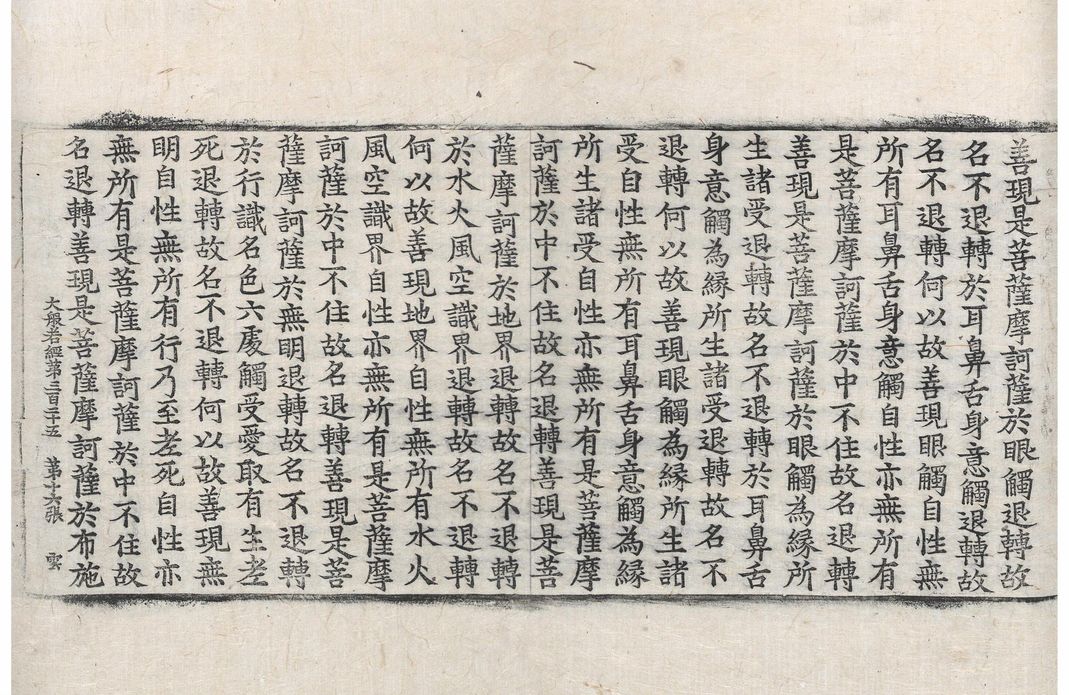 善現是菩薩摩訶薩於眼觸退轉故
名不退轉於耳鼻舌身意觸退轉故
名不退轉何以故善現眼觸自性無
所有耳鼻舌身意觸自性亦無所有
是菩薩摩訶薩於中不住故名退轉
善現是菩薩摩訶薩於眼觸為緣所
生諸受退轉故名不退轉於耳鼻舌
身意觸為緣所生諸受退轉故名不
退轉何以故善現眼觸為緣所生諸
受自性無所有耳鼻舌身意觸為緣
所生諸受自性亦無所有是菩薩摩
訶薩於中不住故名退轉善現是菩
薩摩訶薩於地界退轉故名不退轉
於水火風空識界退轉故名不退轉
何以故善現地界自性無所有水火
風空識界自性亦無所有是菩薩摩
訶薩於中不住故名退轉善現是菩
薩摩訶薩於無明退轉故名不退轉
於行識名色六處觸受愛取有生老
死退轉故名不退轉何以故善現無
明自性無所有行乃至老死自性亦
無所有是菩薩摩訶薩於中不住故
名退轉善現是菩薩摩訶薩於布施
大般若經第三百二十五 第十六張 雲